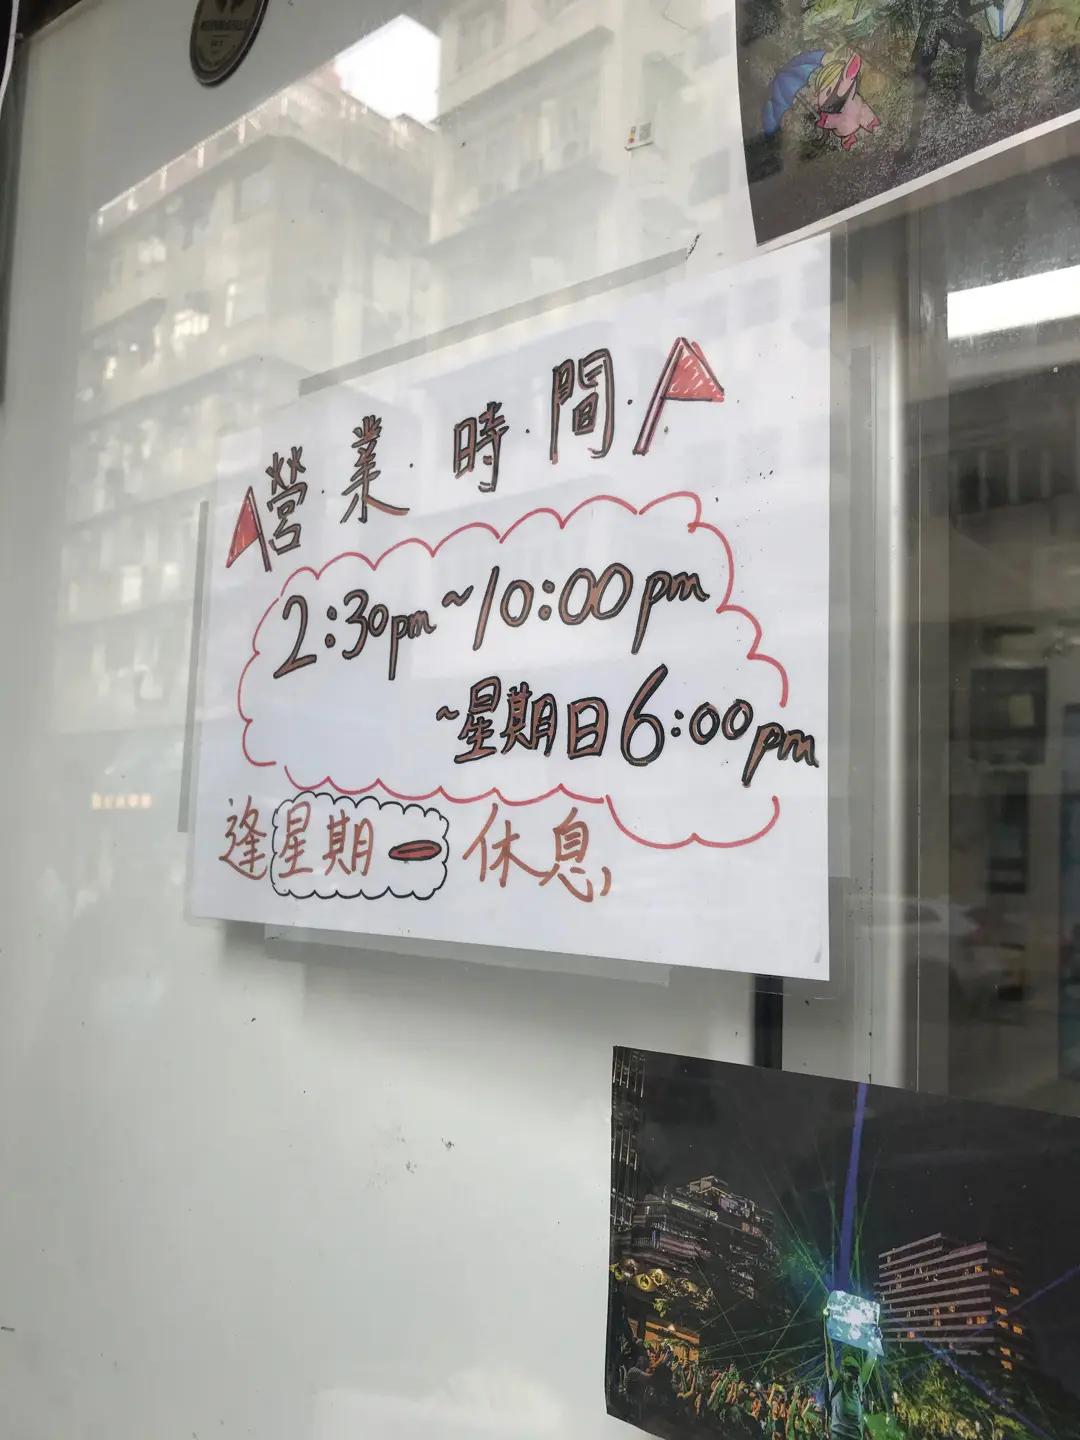 營業時間
2:30pm~10:00pm
~星期日6:00pm
逢星期一休息